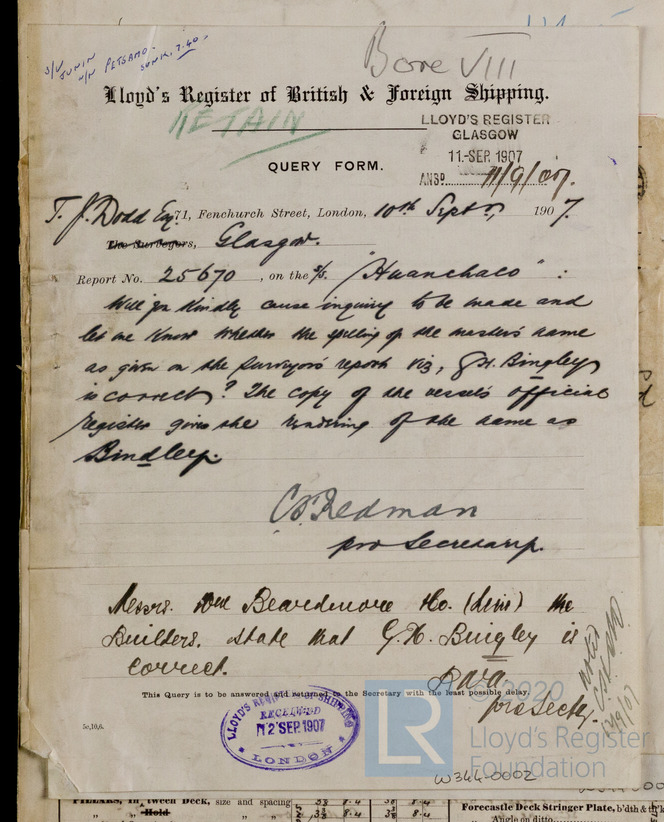 S/V
JUNIN
N/N PETSAMO.
SUNK. 7.40.
Bore VIII
Lloyd's Register of British & Foreign Shipping.
RETAIN
LLOYD'S REGISTER
GLASGOW
11-SEP. 1907
ANSD. 11/9/07.
QUERY FORM.
T. J. Dodd Esq. 71, Fenchurch Street, London, 10th Septr, 1907.
The Surveyors, Glasgow.
Report No. 25670, on the s/s. "Huanchaco" :
Will you kindly cause inquiry to be made and
let me know whether the spelling of the master's name
as given on the Surveyor's report viz, G.H. Bingley
is correct? The copy of the vessel's official
register gives the rendering of the name as
Bindley.
C.S. Redman
pro Secretary.
Messrs. Wm Beardmore & Co. (Lim) the
Builders, state that G. H. Bingley is
correct.
This Query is to be answered and returned to the Secretary with the least possible delay.
pro Secty.
noted
12/9/07
5c,10,6.
LLOYD'S REGISTER OF SHIPPING
RECEIVED
12 SEP. 1907
LONDON
© 2020
LR
Lloyd's Register
Foundation
W344-0002
PILLARS, In 'tween Deck, size and spacing
" " Hold " "
Forecastle Deck Stringer Plate, b'dth & th'k
Angle on ditto